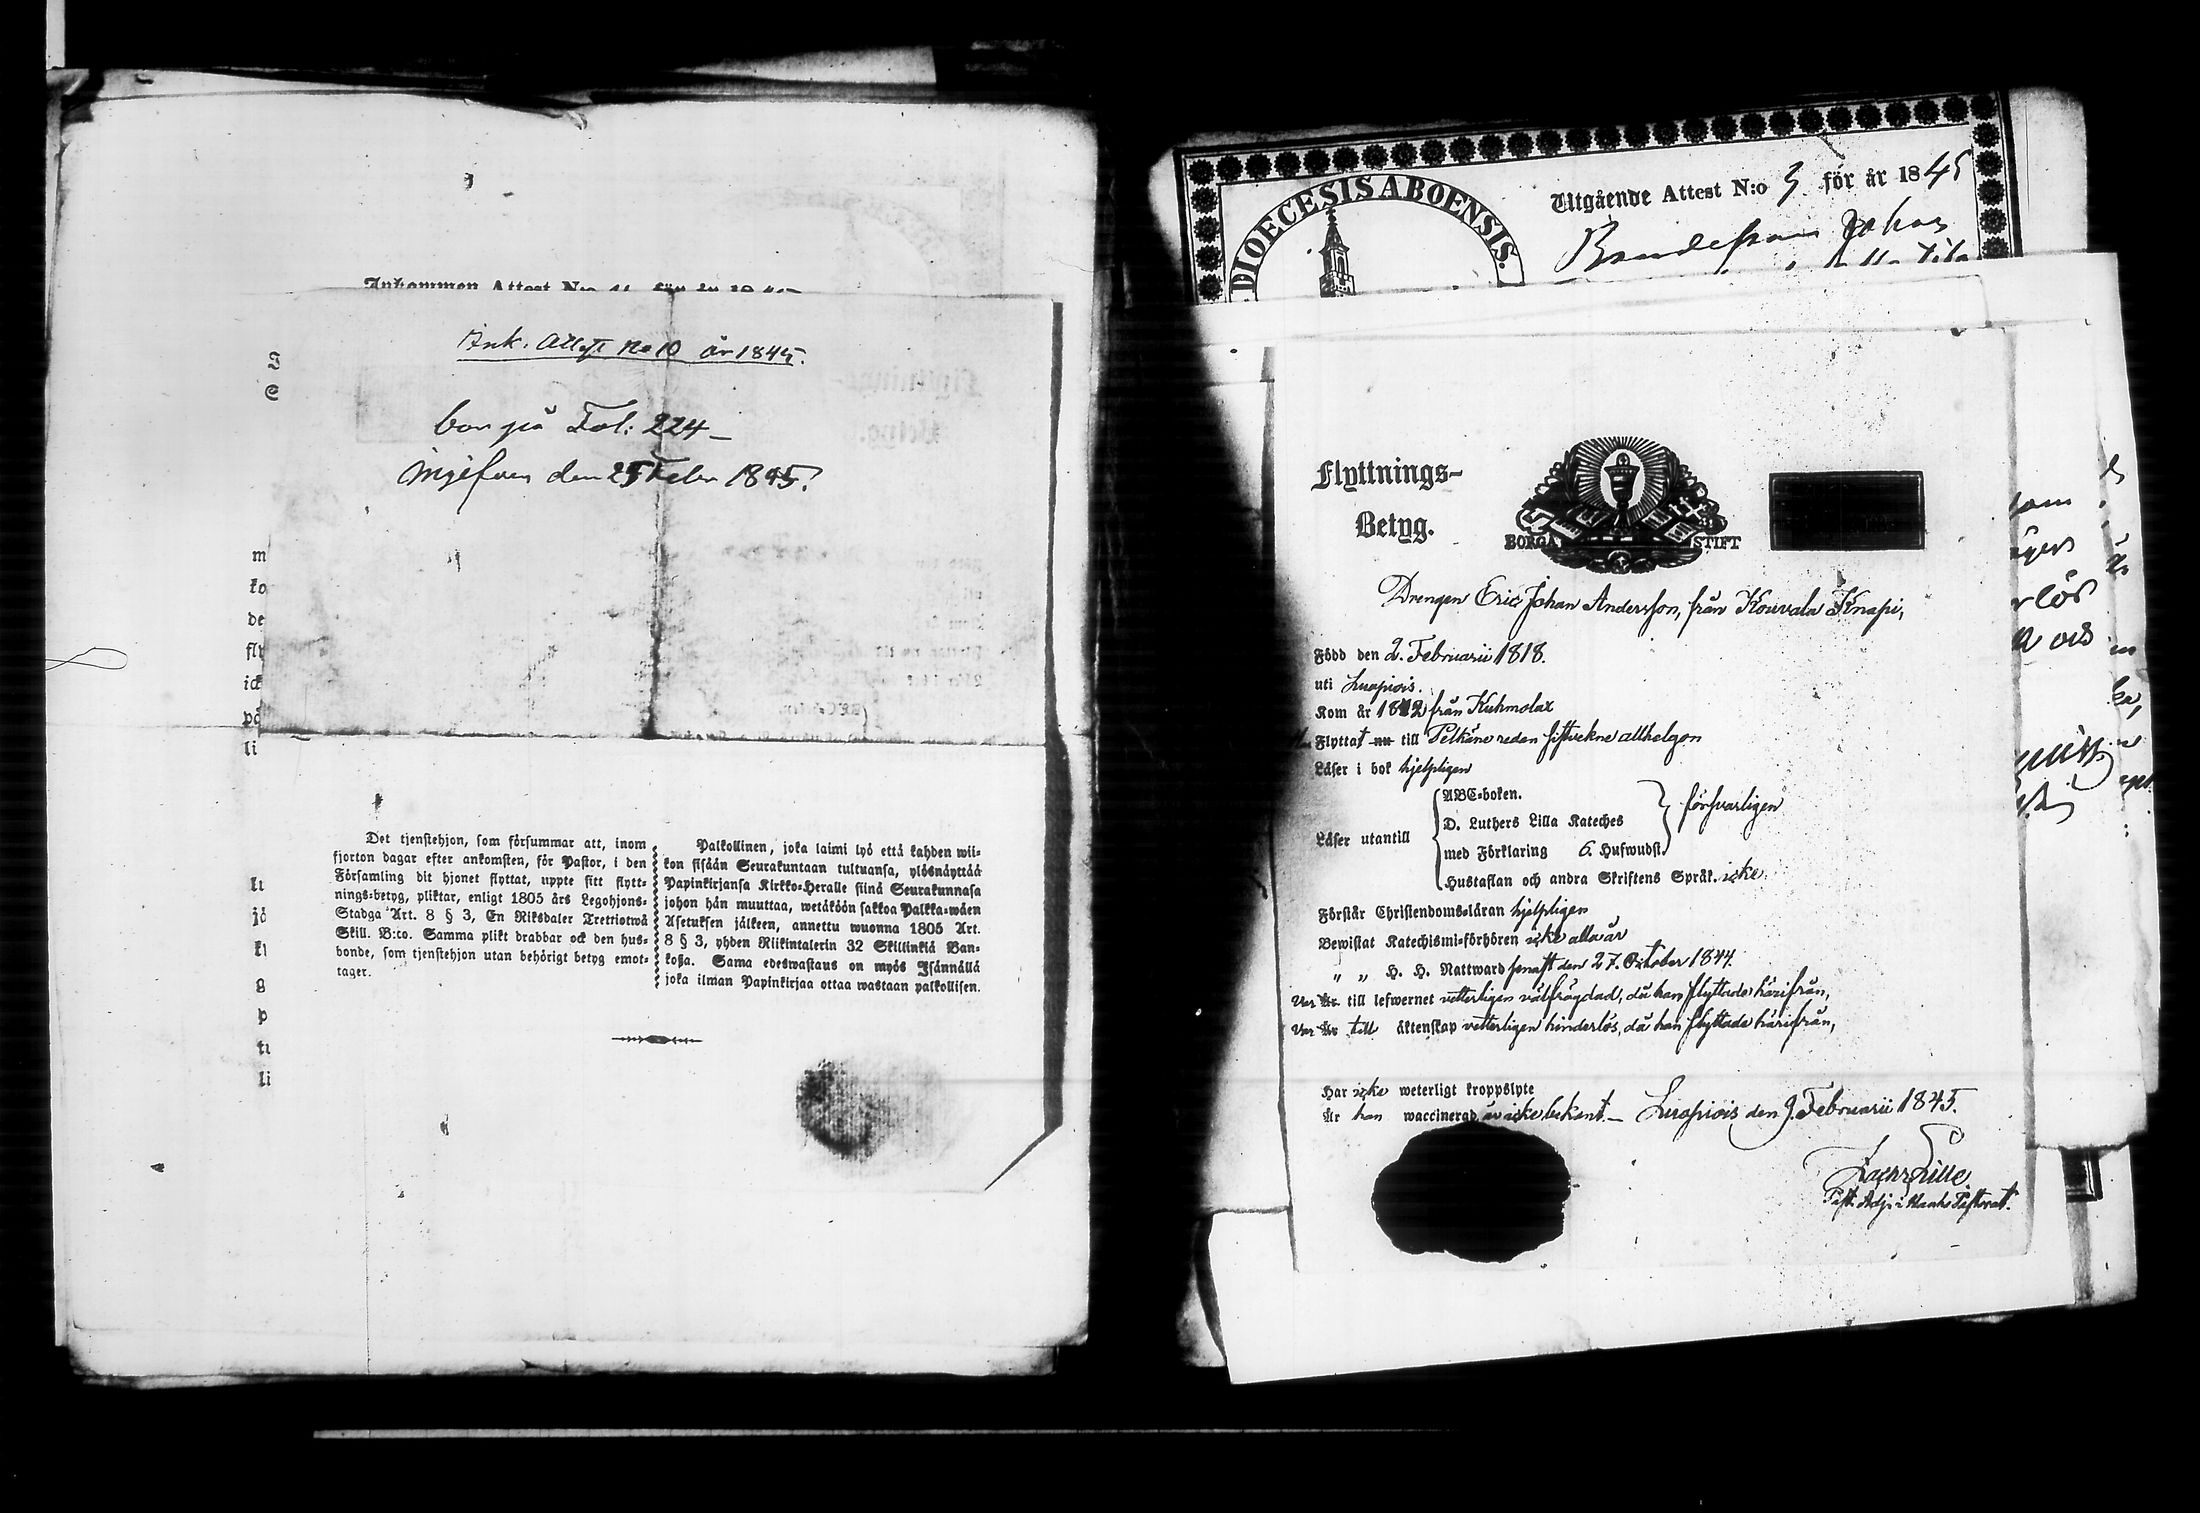 Ankommen Attest N:o 11 för år 1845
Ank. Attest No 10 år 1845.
bor på Fol: 224
ingifven den 25 Febr 1845.
Det tjenstehjon, som försummar att, inom
fjorton dagar efter ankomsten, för Pastor, i den
Församling dit hjonet flyttat, uppte sitt flytt-
nings-betyg, pliktar, enligt 1805 års Legohjons-
Stadga Art. 8 § 3, En Riksdaler Trettiotwå
Skill. B:co. Samma plikt drabbar ock den hus-
bonde, som tjenstehjon utan behörigt betyg emot-
tager.
Palkollinen, joka laimi lyö että kahden wii-
kon sisään Seurakuntaan tultuansa, ylösnäyttää
Papinkirjansa Kirkko-Heralle siinä Seurakunnasa
johon hän muuttaa, wetäköön sakkoa Palkka-wäen
Asetuksen jälkeen, annettu wuonna 1805 Art.
8 § 3, yhden Riikintalerin 32 Skillinkiä Ban-
kosa. Sama edeswastaus on myös Isännällä
joka ilman Papinkirjaa ottaa wastaan palkollisen.
DIOECESIS ABOENSIS.
Utgående Attest N:o 3 för år 1845
Johan
Flyttnings-
Betyg.
BORGÅ STIFT
Drengen Eric Johan Andersson, från Kouvala Knapi,
Född den 2. Februarii 1818.
uti Luopiois.
Kom år 1842 från Kuhmolax
Flyttat nu till Pelkäne redan sistvekne allhelgon
Läser i bok hjelpligen
Läser utantill
ABC-boken.
D. Luthers Lilla Kateches
med Förklaring 6. Hufwudst.
försvarligen
Hustaflan och andra Skriftens Språk. icke
Förstår Christendoms-läran hjelpligen
Bewistat Katechismi-förhören icke alla år
" " H. H. Nattward senast den 27. October 1844.
Var Är till lefwernet vetterligen välfrägdad, då han flyttade härifrån,
Var Är till äktenskap vetterligen hinderlös, då han flyttade härifrån,
Har icke weterligt kroppslyte
Är han waccinerad är icke bekant. – Luopiois den 9. Februarii 1845.
Zachr Lilius
Past. Adj. i Pastorat.